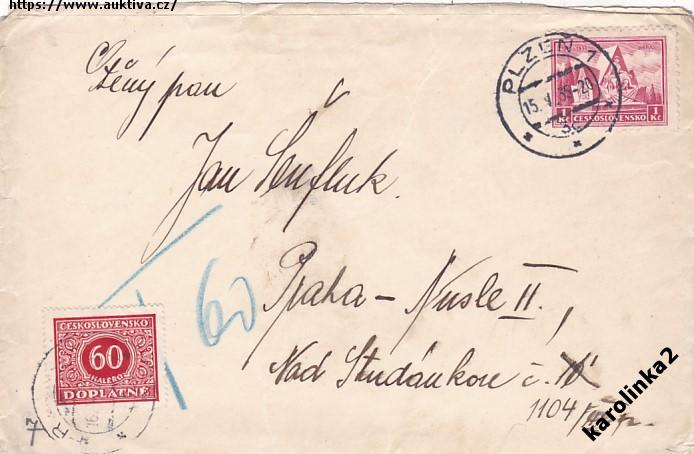 https://www.auktiva.cz/
PLZEŇ 1
15. V. 35-20
1 Kč ČESKOSLOVENSKO 1 Kč
Ctěný pan
Jan
Praha - Nusle II.,
Nad Studánkou č.
1104
60
ČESKOSLOVENSKO
60
HALÉŘŮ
DOPLATNÉ
7
karolinka2